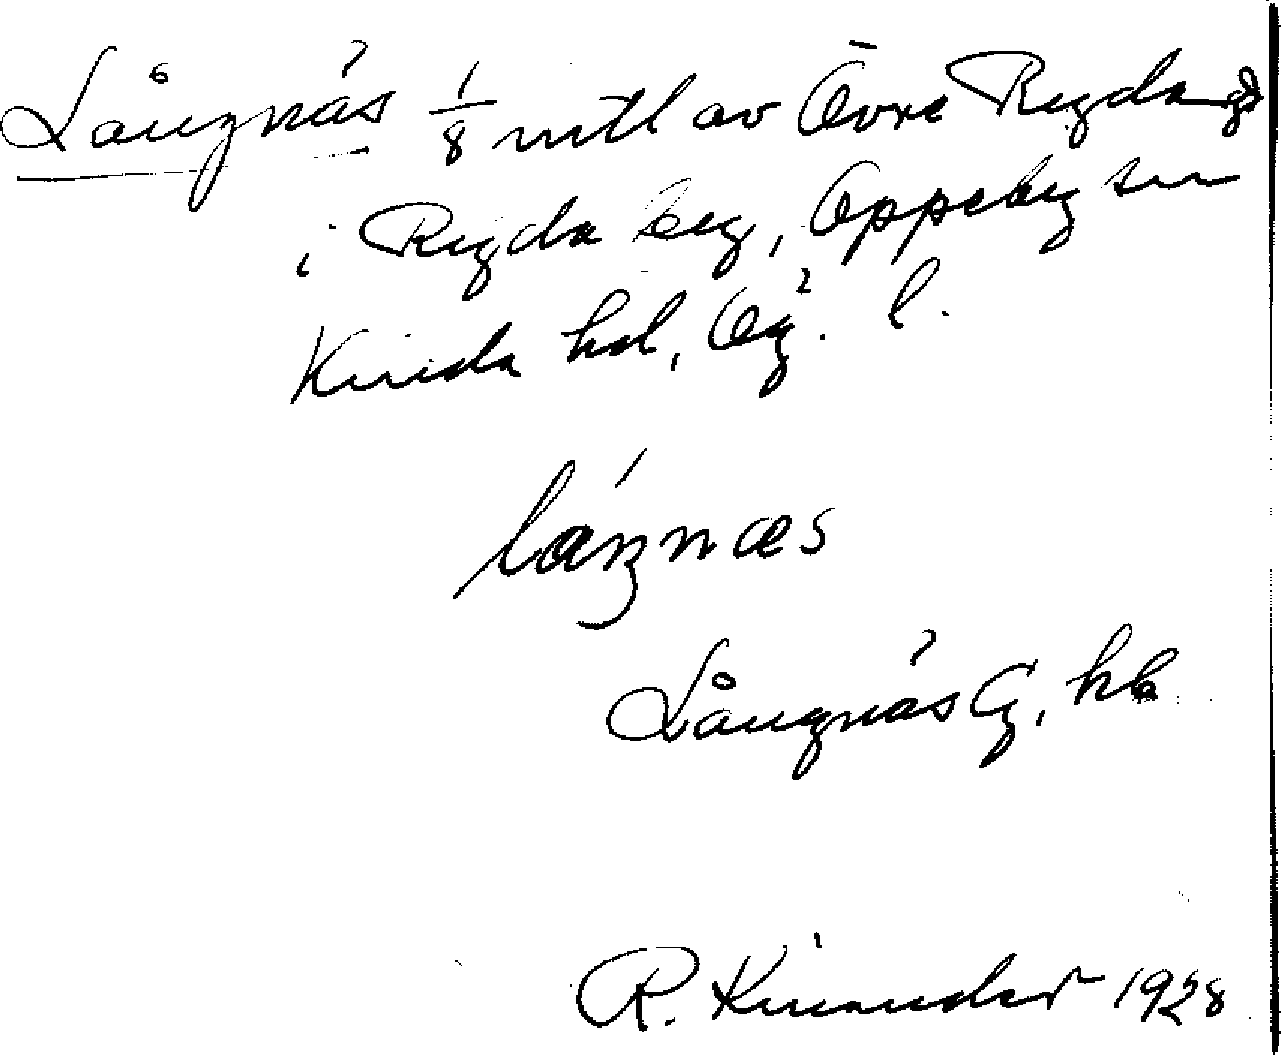 Långnäs 1/8 mtl av Övre Rydagd
i Ryda by, Oppeby sn
Kinda hd, Ög. l.
láŋnæs
Långnäs G, hb
R. Kinander 1928